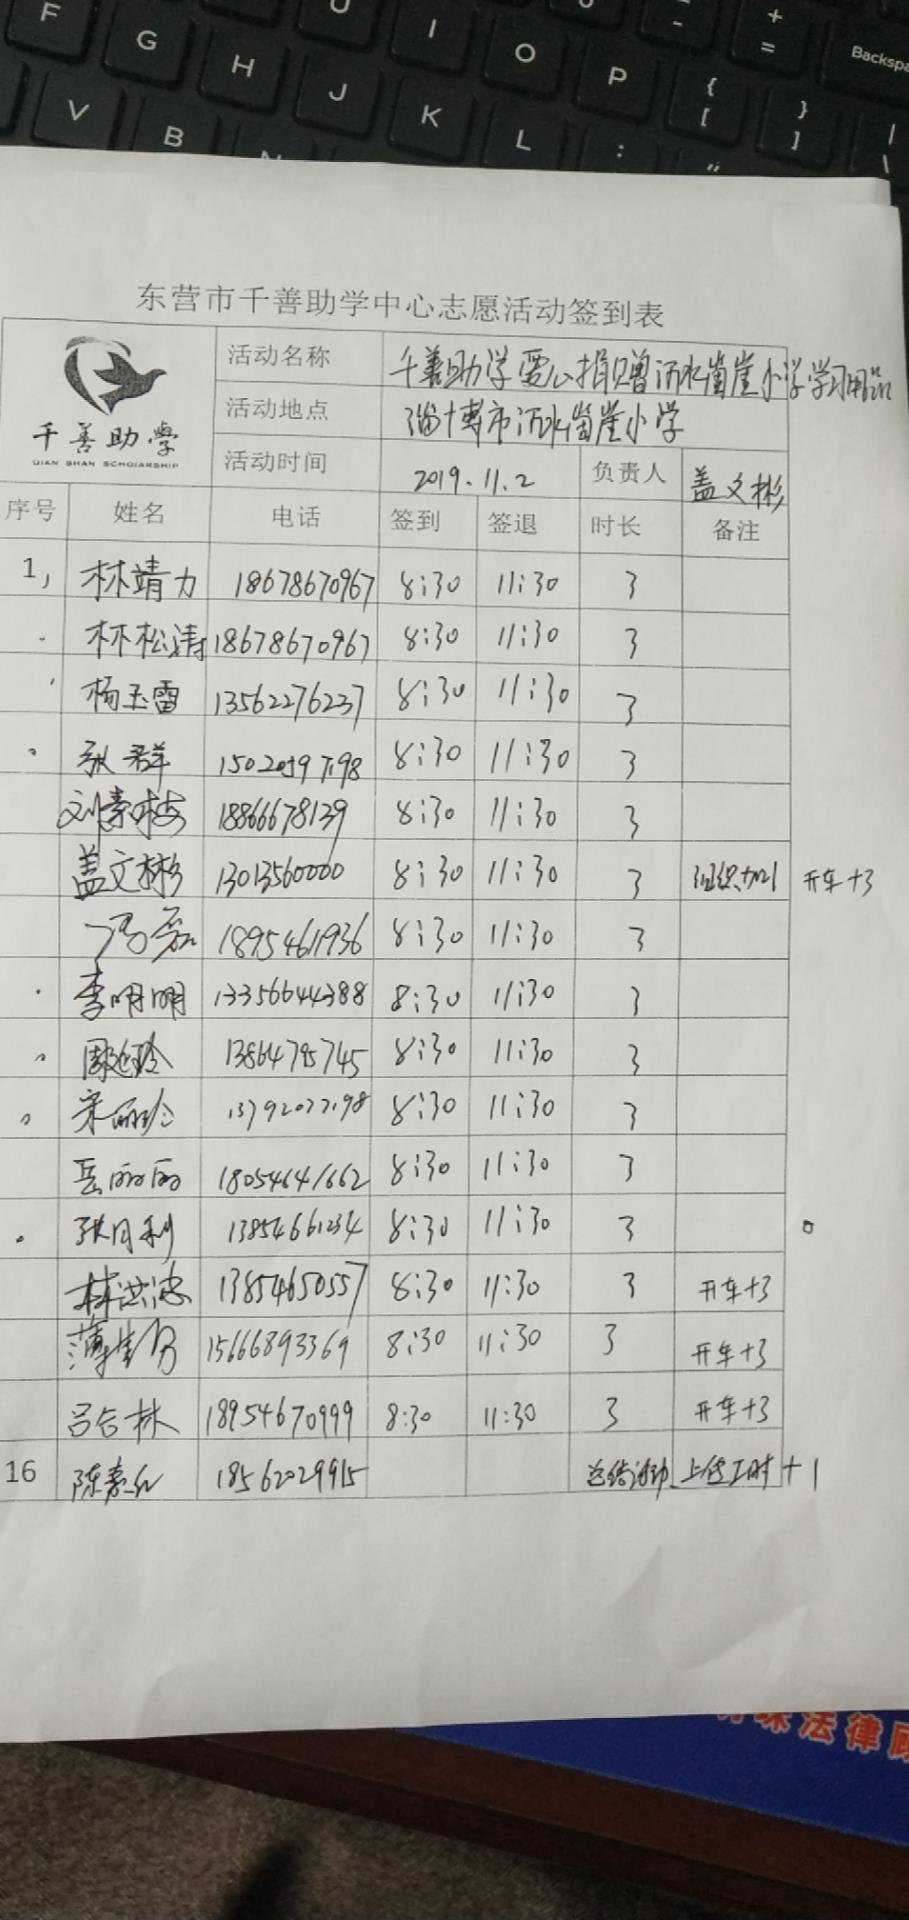 F
G
H
J
K
L
U
I
O
P
V
B
N
Backspa
东营市千善助学中心志愿活动签到表
千善助学
QIAN SHAN SCHOLARSHIP
活动名称 千善助学爱心捐赠沂水崮崖小学学习用品
活动地点 淄博市沂水崮崖小学
活动时间 2019.11.2 负责人 盖文彬
序号 姓名 电话 签到 签退 时长 备注
1, 林靖力 18678670967 8:30 11:30 3
林松涛 18678670967 8:30 11:30 3
杨玉雷 13562276237 8:30 11:30 3
张群 8:30 11:30 3
刘素梅 18866678139 8:30 11:30 3
盖文彬 13013560000 8:30 11:30 3 组织、加1 开车+3
冯磊 18954611936 8:30 11:30 3
李明明 13356644388 8:30 11:30 3
周延玲 13864795745 8:30 11:30 3
宋丽珍 13792077198 8:30 11:30 3
岳丽丽 18054641662 8:30 11:30 3
张月利 13854661234 8:30 11:30 3
林洪忠 13854650557 8:30 11:30 3 开车+3
薄 15666893369 8:30 11:30 3 开车+3
吕合林 18954670999 8:30 11:30 3 开车+3
16 陈素红 18562029915 总结活动 上传工时+1
法律顾